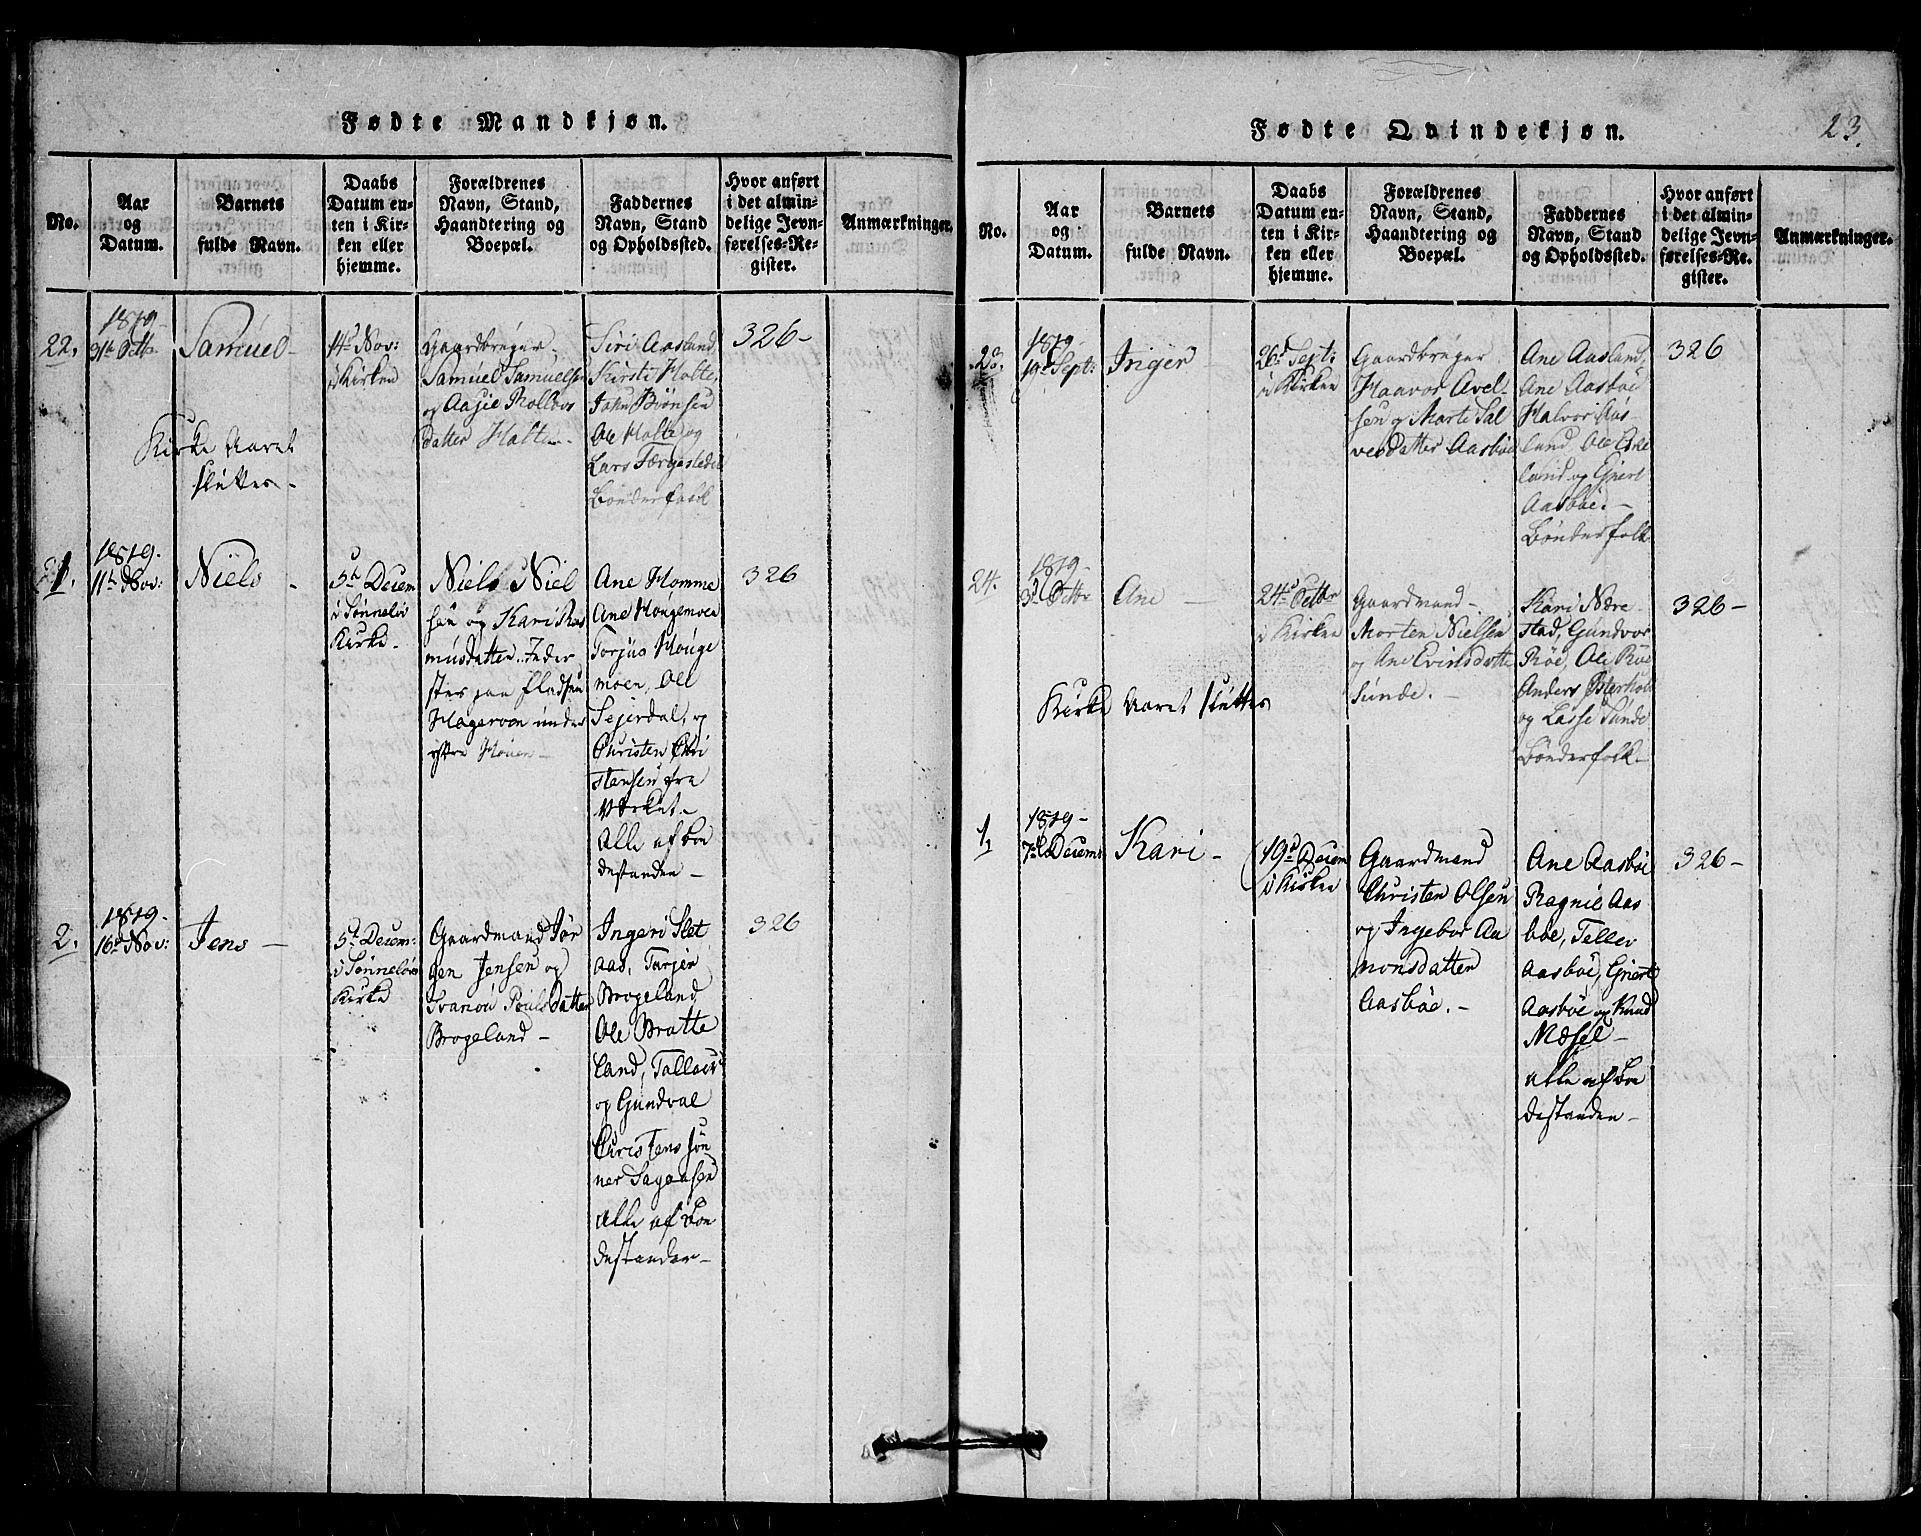 Fødte Mandkjøn.
No.
Aar
og
Datum.
Barnets
fulde Navn.
Daabs
Datum en-
ten i Kir-
ken eller
hjemme.
Forældrenes
Navn, Stand,
Haandtering og
Boepæl.
Faddernes
Navn, Stand
og Opholdssted.
Hvor anført
i det almin-
delige Jevn-
førelses-Re-
gister.
Anmærkninger.
22.
1819-
31te Octbr
Samuel-
14d Nov:
i Kirken
Gaardbruger
Samuel Samuels
og Aasie
datter Holte.-
Siri Aasland
Kirsti Holte,
John Biønsen
Ole Holte og
Lars Færgestedet
Bønderfolk
326-
Kirke Aaret
slutter-
1.
1819.
11te Nov:
Niels -
5te Decem
i Tønneløs
Kirke-
Niels Niel
sen og Kari Ras
musdatter. Inder
ster paa Pladsen
Hagerven under
ystre Houen-
Ane Homme
Ane Hougemoen
Torjus Houge
moen, Ole
Tejerdal, og
Christen Chri
stensen fra
Værket.-
Alle af Bon
destanden-
326
2.
1819.
16de Nov:
Jens -
5te Decem:
i Tønneløs
Kirke
Gaardmand Jør
gen Jensen og
Svanou Poulsdatter
Brogeland-
Ingeri Slet
aas, Tarjer
Brogeland,
Ole Bratte
land, Tallaev
og Gundval
Christens søn
ner Sagansen
Alle af Bon
destanden-
326
Fødte Qvindekjøn.
23.
No.
Aar
og
Datum.
Barnets
fulde Navn.
Daabs
Datum en-
ten i Kir-
ken eller
hjemme.
Forældrenes
Navn, Stand,
Haandtering og
Boepæl.
Faddernes
Navn, Stand
og Opholdssted.
Hvor anført
i det almin-
delige Jevn-
førelses-Re-
gister.
Anmærkninger.
23.
1819-
19d Sept:
Inger -
26d Sept:
i Kirken
Gaardbruger
Haavor Avel-
sen og Marte Sal
vesdatter Aasbøe
Ane Aasland,
Ane Aasbøe
Halvor Aas-
land, Ole
land og Gjert
Aasbøe.-
Bønderfolk
326
24.
1819-
3d Octbr
Ane -
24d Octbr
i Kirken
Gaardmand-
Morten Nielsen
og Ane Evindsdatter
Sunde.-
Kari Nære-
stad, Gundvor
Røe, Ole Røe
Anders Østerholt
og Lasse Sunde
Bønderfolk-
326-
Kirke Aaret slutter
1.
1819-
7de Decem
Kari-
19d Decem
i Kirken
Gaardmand
Christen Olsen
og Ingebor Aa
nonsdatter
Aasbøe.-
Ane Aasbøe
Ragnil Aas
bøe, Tellev
Aasbøe, Gjert
Aasbøe og Knud
Mæsel-
Alle af Bon
destanden-
326-